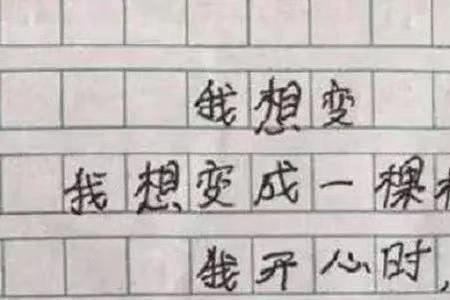 我想变
我想变成一棵
我开心时,